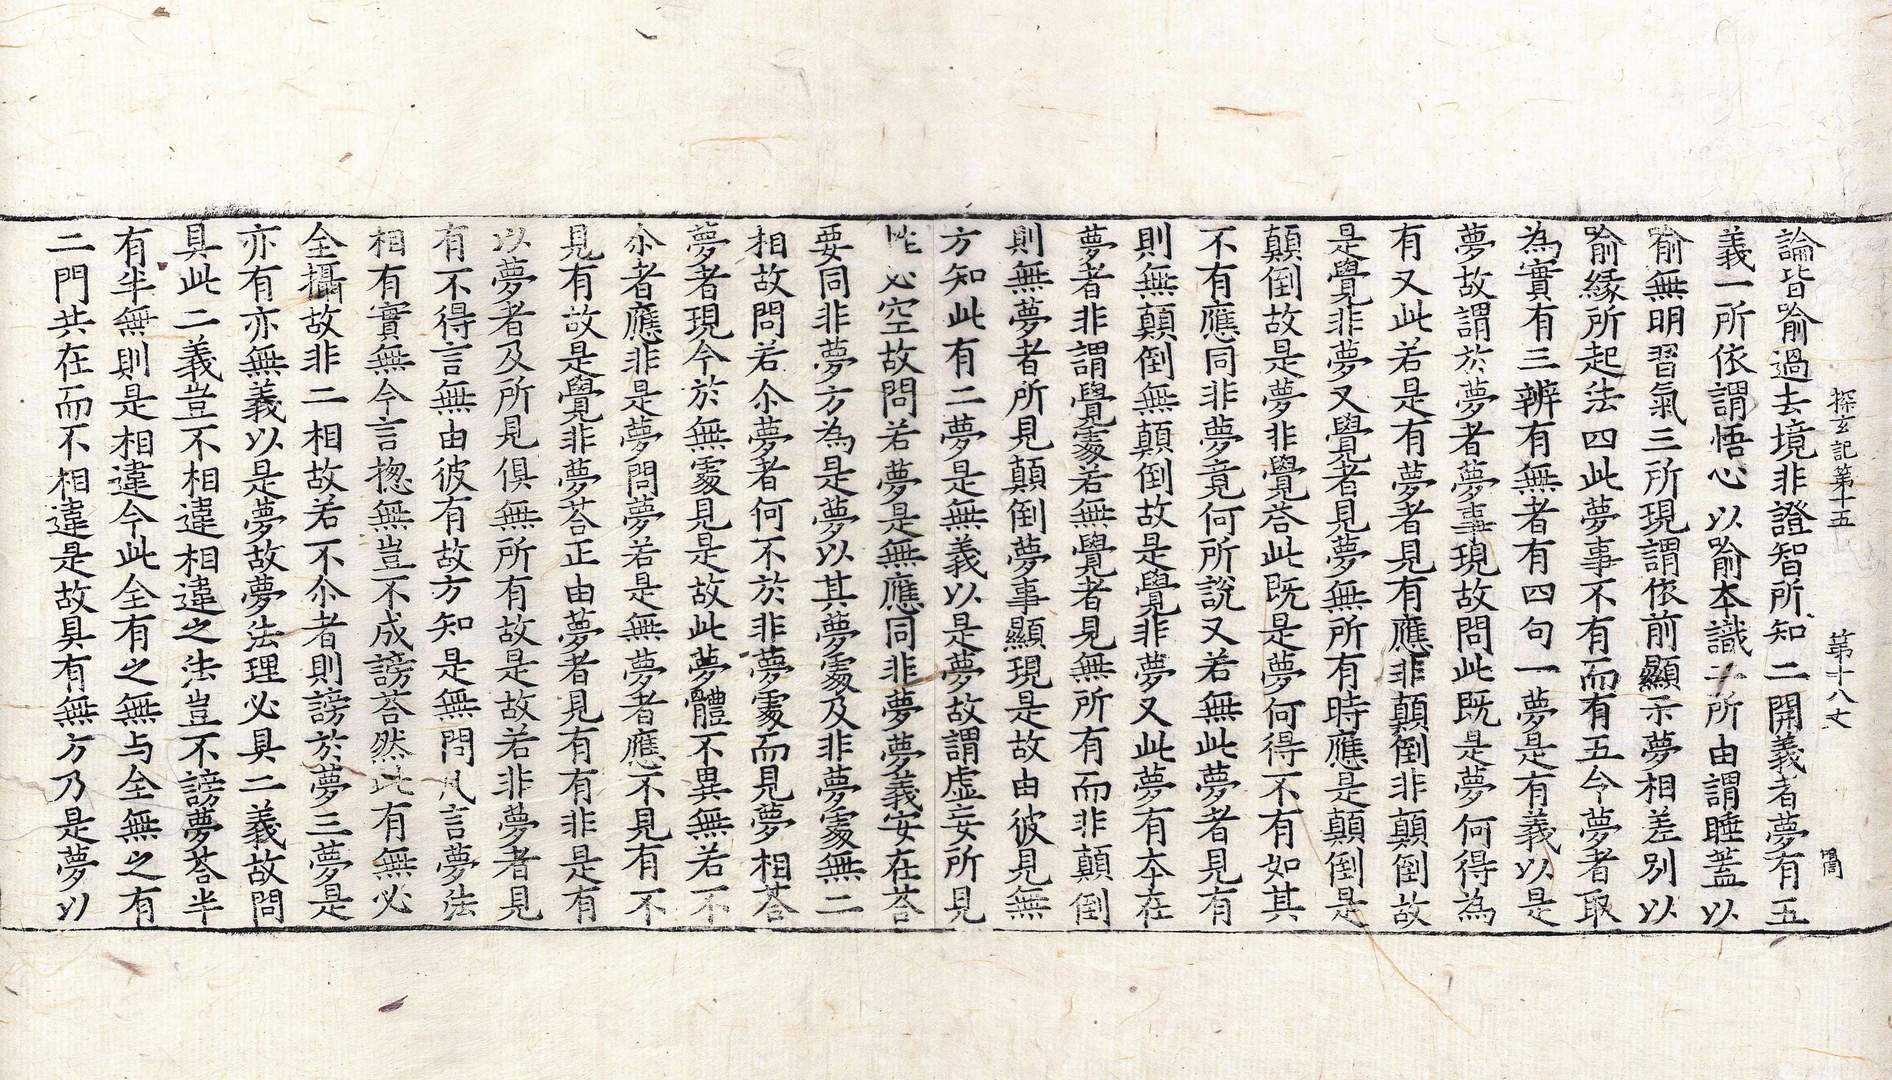 探玄記第十五　第十八丈
論皆喻過去境非證智所知二開義者夢有五
義一所依謂悟心以喻本識二所由謂睡蓋以
喻無明習氣三所現謂依前顯示夢相差別以
喻緣所起法四此夢事不有而有五今夢者取
為實有三辨有無者有四句一夢是有義以是
夢故謂於夢者夢事現故問此既是夢何得為
有又此若是有夢者見有應非顛倒非顛倒故
是覺非夢又覺者見夢無所有時應是顛倒是
顛倒故是夢非覺荅此既是夢何得不有如其
不有應同非夢竟何所說又若無此夢者見有
則無顛倒無顛倒故是覺非夢又此夢有夲在
夢者非謂覺䖏若無覺者見無所有而非顛倒
則無夢者所見顛倒夢事顯現是故由彼見無
方知此有二夢是無義以是夢故謂虛妄所見
性必空故問若夢是無應同非夢夢義安在荅
要同非夢方為是夢以其夢䖏及非夢䖏無二
相故問若尒夢者何不於非夢䖏而見夢相荅
夢者現今於無䖏見是故此夢體不異無若不
尒者應非是夢問夢若是無夢者應不見有不
見有故是覺非夢荅正由夢者見有有非是有
以夢者及所見俱無所有故是故若非夢者見
有不得言無由彼有故方知是無問凡言夢法
相有實無今言揔無豈不成謗荅然此有無必
全攝故非二相故若不尒者則謗於夢三夢是
亦有亦無義以是夢故夢法理必具二義故問
具此二義豈不相違相違之法豈不謗夢荅半
有半無則是相違今此全有之無与全無之有
二門共在而不相違是故具有無方乃是夢以